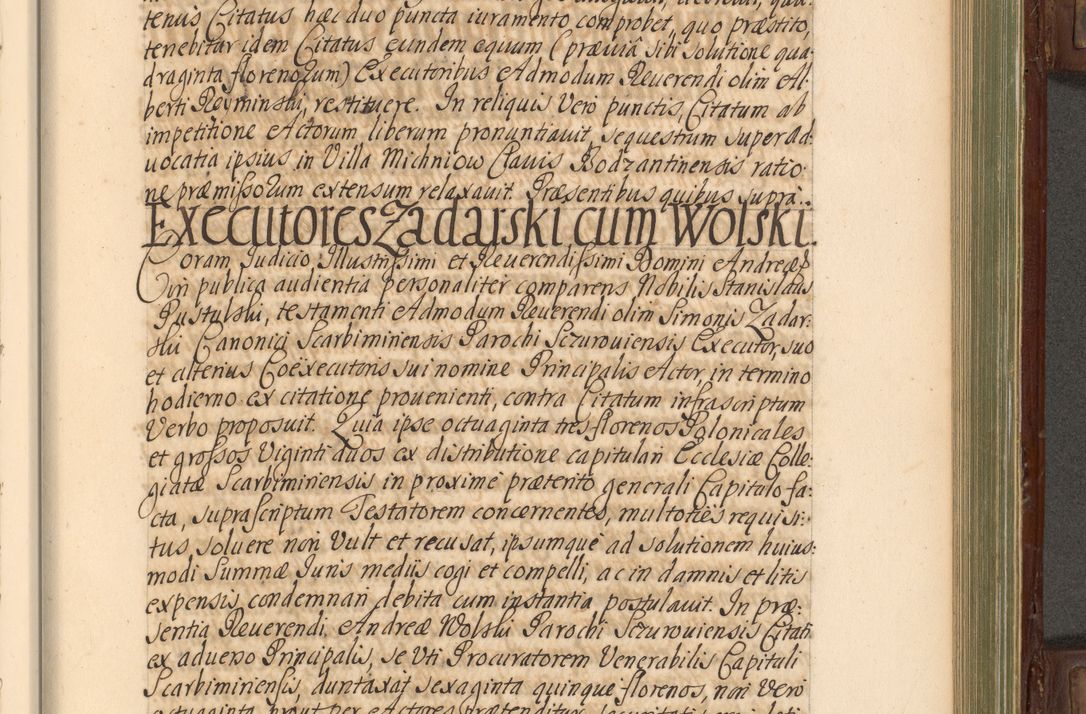 tenus Citatus hæc duo puncta iuramento comprobet, quo præstito,
tenebitur idem Citatus eundem equum (præuiâ sibi solutione qua-
draginta florenorum) Executoribus Admodum Reuerendi olim Al-
berti Reyminski, restituere. In reliquis Vero punctis, Citatum ab
impetitione Actorum liberum pronuntiauit, sequestrum super ad-
uocatia ipsius in Villa Michniow Clauis Bodzantinensis ratio-
ne præmissorum extensum relaxauit. Præsentibus quibus supra.
Executores Zadarski cum Wolski.
Coram Judicio Illustrissimi et Reuerendissimi Domini Andreæ
in publica audientia personaliter comparens Nobilis Stanislaus
Pustulski, testamenti Admodum Reuerendi olim Simonis Zadar-
ski Canonici Scarbimirensis Parochi Sczurouiensis Executor, suo
et alterius Coëxecutoris sui nomine Principalis Actor, in termino
hodierno ex citatione prouenienti, contra Citatum infrascriptum
Verbo proposuit. Quia ipse octuaginta tres florenos Polonicales
et grossos Viginti duos ex distributione capitulari Ecclesiæ Colle-
giatæ Scarbimirensis in proxime præterito generali Capitulo fa-
cta, suprascriptum Testatorem concernentes, multoties requisi-
tus, soluere non Vult et recusat, ipsumque ad solutionem huius-
modi Summæ Juris mediis cogi et compelli, ac in damnis et litis
expensis, condemnari debita cum instantia postulauit. In præ-
sentia Reuerendi Andreæ Wolski Parochi Sczurouiensis Citati
ex aduerso Principalis, se Vti Procuratorem Venerabilis Capituli
Scarbimirensis, duntaxat sexaginta quinque florenos, non Vero